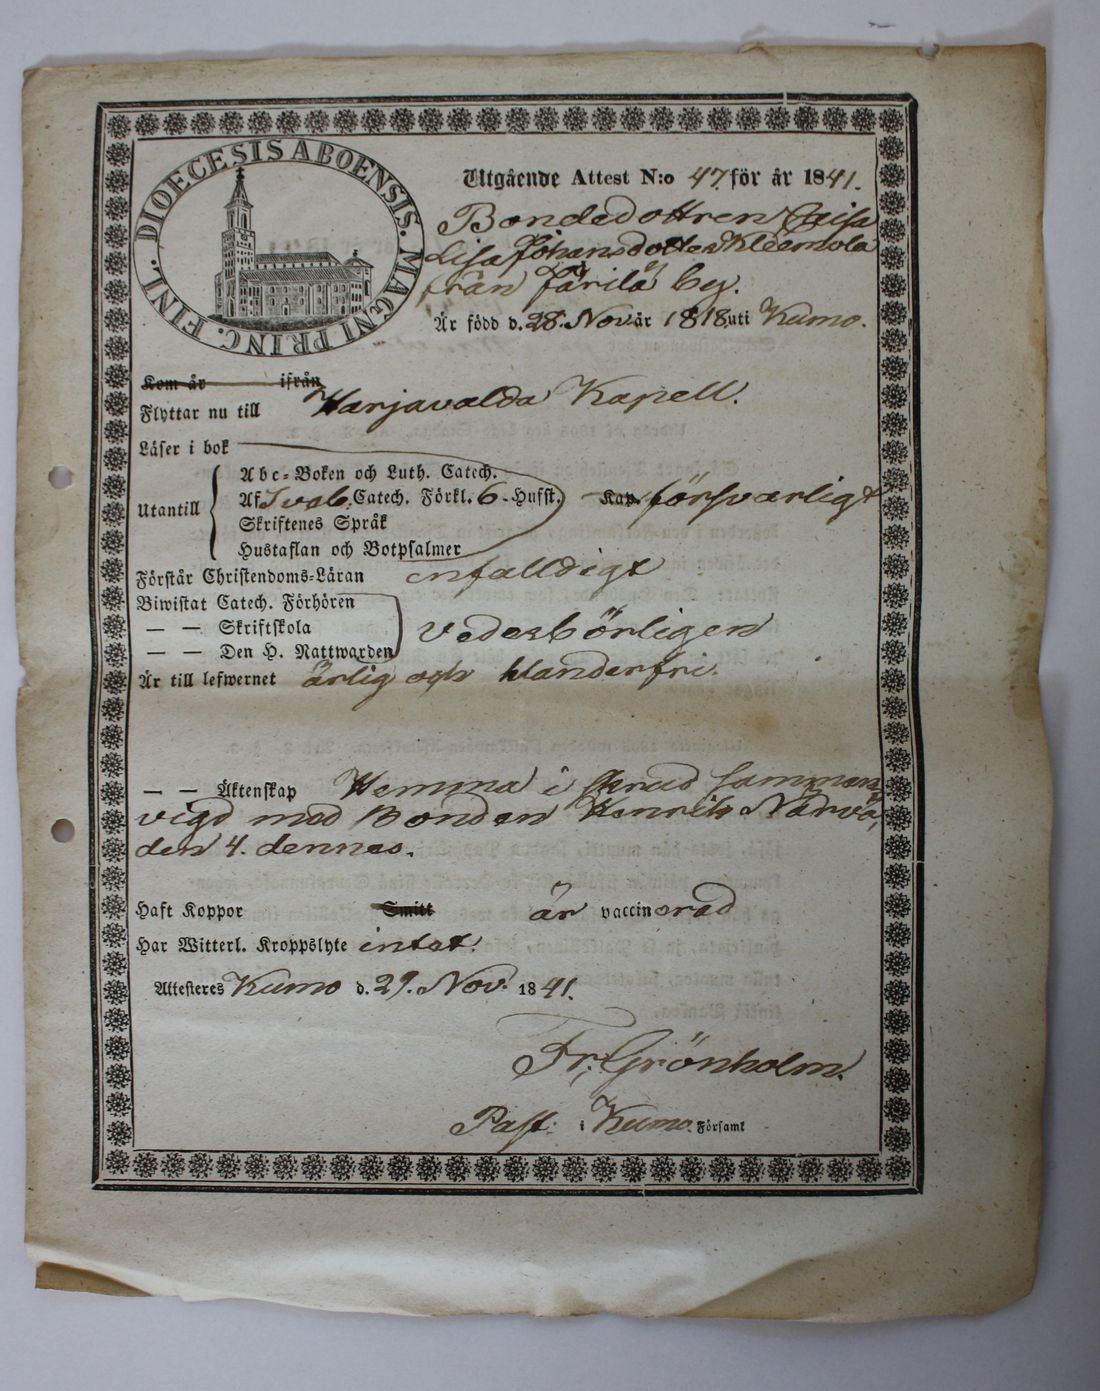 DIOECESIS ABOENSIS. MAGNI PRINC. FINL.
Utgående Attest N:o 47 för år 1841.
Bondedottren Caisa
Lisa Johansdotter Kleemola
från Färilä by.
Är född d. 28. Nov. år 1818 uti Kumo.
Kom år ifrån
Flyttar nu till Harjavalda Kapell.
Läser i bok
Utantill
Abc-Boken och Luth. Catech.
Af Sveb. Catech. Förkl. 6-Hufst. Kap. försvarligt
Skriftenes Språk
Hustaflan och Botpsalmer
Förstår Christendoms-Läran enfalldigt
Biwistat Catech. Förhören
— — Skriftskola vederbörligen
— — Den H. Nattwarden
Är till lefwernet ärlig och klanderfri.
— — Äktenskap Hemma i Sk samman
vigd med Bonden Henrik Närvä,
den 4. dennes.
Haft Koppor Smitt är vaccinerad
Har Witterl. Kroppslyte intet.
Attesteres Kumo d. 29. Nov. 1841.
Fr. Grönholm.
Past. i Kumo Församl